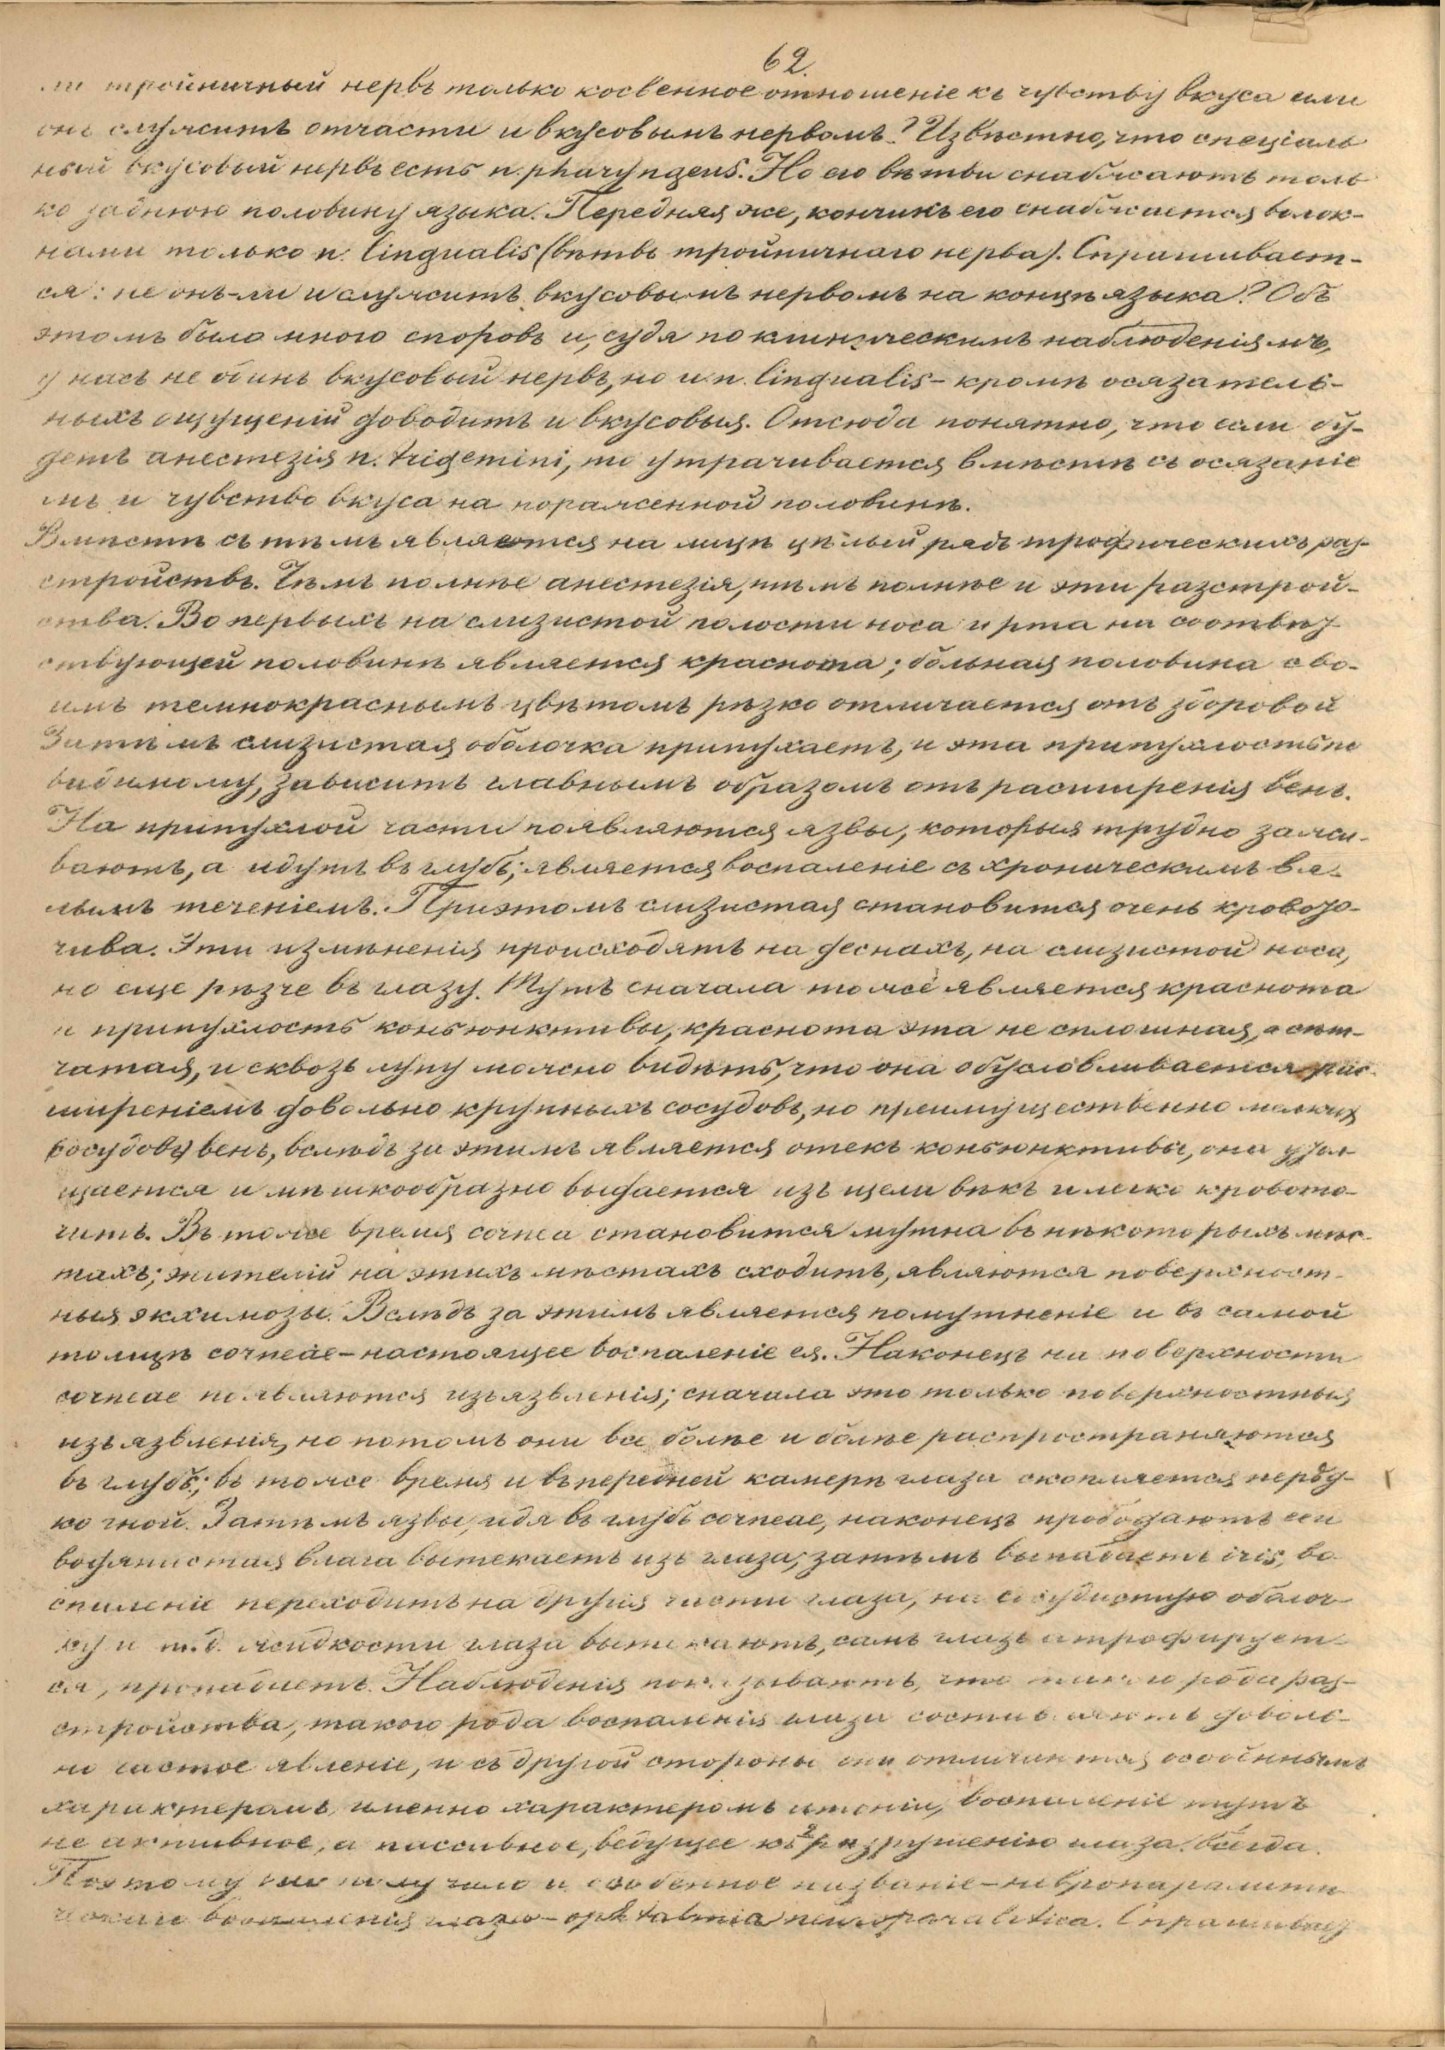 62.
ли тройничный нервъ только косвенное отношеніе къ чувству вкуса или
онъ служитъ отчасти и вкусовымъ нервомъ? Извѣстно, что спеціаль
ный вкусовый нервъ есть n. pharyngeus. Но его вѣтви снабжаютъ толь
ко заднюю половину языка. Передняя же, кончикъ его снабжается волок-
нами только n. lingualis (вѣтвь тройничнаго нерва). Спрашивает-
ся: не онъ-ли и служитъ вкусовымъ нервомъ на концѣ языка? Объ
этомъ было много споровъ и, судя по клиническимъ наблюденіямъ,
у насъ не одинъ вкусовый нервъ, но и n. lingualis - кромѣ осязатель-
ныхъ ощущеній доводитъ и вкусовыя. Отсюда понятно, что если бу-
детъ анестезія n. trigemini, то утрачивается вмѣстѣ съ осязаніе
мъ и чувство вкуса на пораженной половинѣ.
Вмѣстѣ съ тѣмъ являются на лицѣ цѣлый рядъ трофическихъ раз-
стройствъ. Чѣмъ полнѣе анестезія, тѣмъ полнѣе и эти разстрой-
ства. Во первыхъ на слизистой полости носа и рта на соотвѣт
ствующей половинѣ является краснота; больная половина сво-
имъ темнокраснымъ цвѣтомъ рѣзко отличается отъ здоровой
Затѣмъ слизистая оболочка припухаетъ, и эта припухлость по
видимому, зависитъ главнымъ образомъ отъ расширенія венъ.
На припухлой части появляются язвы, которыя трудно зажи-
ваютъ, а идутъ въ глубь; является воспаленіе съ хроническимъ вя-
лымъ теченіемъ. При этомъ слизистая становится очень кровото-
чива. Эти измѣненія происходятъ на деснахъ, на слизистой носа,
но еще рѣзче въ глазу. Тутъ сначала тоже является краснота
и припухлость конъюнктивы, краснота эта не сплошная, а сѣт-
чатая, и сквозь лупу можно видѣть, что она обусловливается рас-
ширеніемъ довольно крупныхъ сосудовъ, но преимущественно мелкихъ
(сосудовъ) венъ, вслѣдъ за этимъ является отекъ конъюнктивы, она утол
щается и мѣшкообразно выдается изъ щели вѣкъ и легко кровото-
читъ. Въ тоже время cornea становится мутна въ нѣкоторыхъ мѣс-
тахъ; эпителій на этихъ мѣстахъ сходитъ, являются поверхност-
ныя экхимозы. Вслѣдъ за этимъ является помутнѣніе и въ самой
толщѣ corneae - настоящее воспаленіе ея. Наконецъ на поверхности
corneae появляются изъязвленія; сначала это только поверхностныя
изъязвленія, но потомъ они все болѣе и болѣе распространяются
въ глубь; въ тоже время и въ передней камерѣ глаза скопляется нерѣд-
ко гной. Затѣмъ язвы, идя въ глубь corneae, наконецъ прободаютъ ее и
водянистая влага вытекаетъ изъ глаза, затѣмъ выпадаетъ iris, во
спаленіе переходитъ на другія части глаза, на сосудистую оболоч-
ку и т.д. жидкости глаза вытекаютъ, самъ глазъ атрофирует-
ся, пропадаетъ. Наблюденія показываютъ, что такого рода раз-
стройства, такого рода воспаленія глаза составляютъ доволь-
но частое явленіе, и съ другой стороны они отличаются особеннымъ
характеромъ именно характеромъ атоніи, воспаленіе тутъ
не активное, а пассивное, ведущее къ разрушенію глаза всегда.
Поэтому оно получило и особенное названіе - невропаралити
ческаго воспаленія глаза - ophtalmia neuroparalitica. Спрашивает